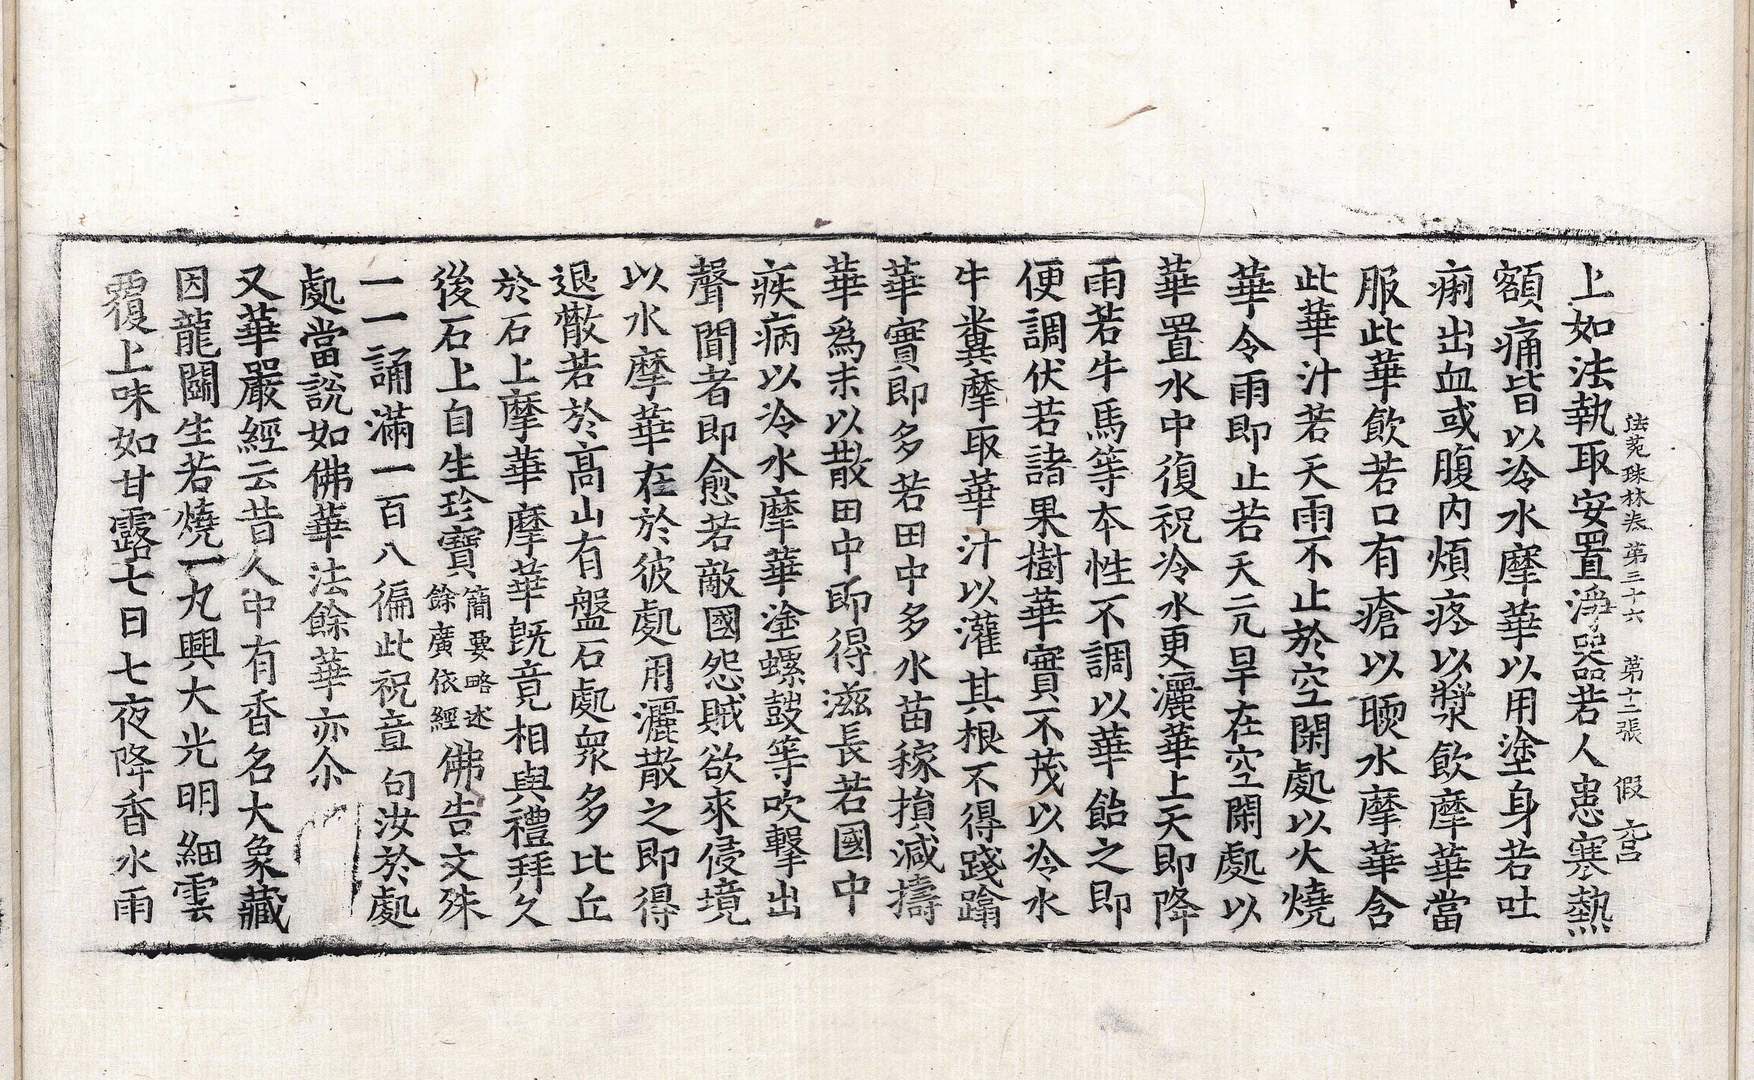 法苑珠林卷第三十六 第十二張 假 宫
上如法執取安置淨器若人患寒熱
額痛皆以冷水摩華以用塗身若吐
痢出血或腹内煩疼以漿飲摩華當
服此華飲若口有瘡以㬉水摩華含
此華汁若天雨不止於空閑處以火燒
華令雨即止若天亢旱在空閑處以
華置水中復祝冷水更灑華上天即降
雨若牛馬等本性不調以華飴之即
便調伏若諸果樹華實不茂以冷水
牛糞摩取華汁以灌其根不得踐蹹
華實即多若田中多水苗稼損減擣
華爲末以散田中即得滋長若國中
疾病以冷水摩華塗螺鼓等吹擊出
聲聞者即愈若敵國怨賊欲來侵境
以水摩華在於彼處用灑散之即得
退散若於高山有盤石處衆多比丘
於石上摩華摩華旣竟相與禮拜久
後石上自生珍寶簡要略述餘廣依經佛告文殊
一一誦滿一百八徧此祝章句汝於處
處當說如佛華法餘華亦尒
又華嚴經云昔人中有香名大象藏
因龍鬬生若燒一丸興大光明細雲
覆上味如甘露七日七夜降香水雨